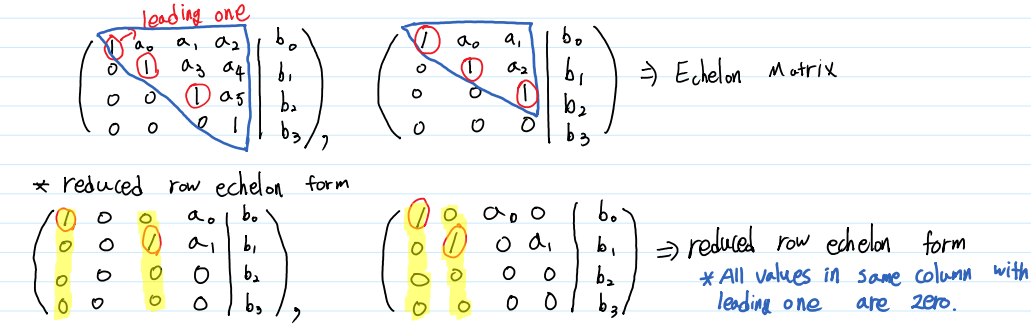 leading one
1 a₀ a₁ a₂ | b₀
0 1 a₃ a₄ | b₁
0 0 1 a₅ | b₂
0 0 0 1 | b₃ ,
1 a₀ a₁ | b₀
0 1 a₂ | b₁
0 0 1 | b₂
0 0 0 | b₃
⇒ Echelon Matrix
* reduced row echelon form
1 0 0 a₀ | b₀
0 0 1 a₁ | b₁
0 0 0 0 | b₂
0 0 0 0 | b₃ ,
1 0 a₀ 0 | b₀
0 1 0 a₁ | b₁
0 0 0 0 | b₂
0 0 0 0 | b₃
⇒ reduced row echelon form
* All values in same column with
leading one are zero.